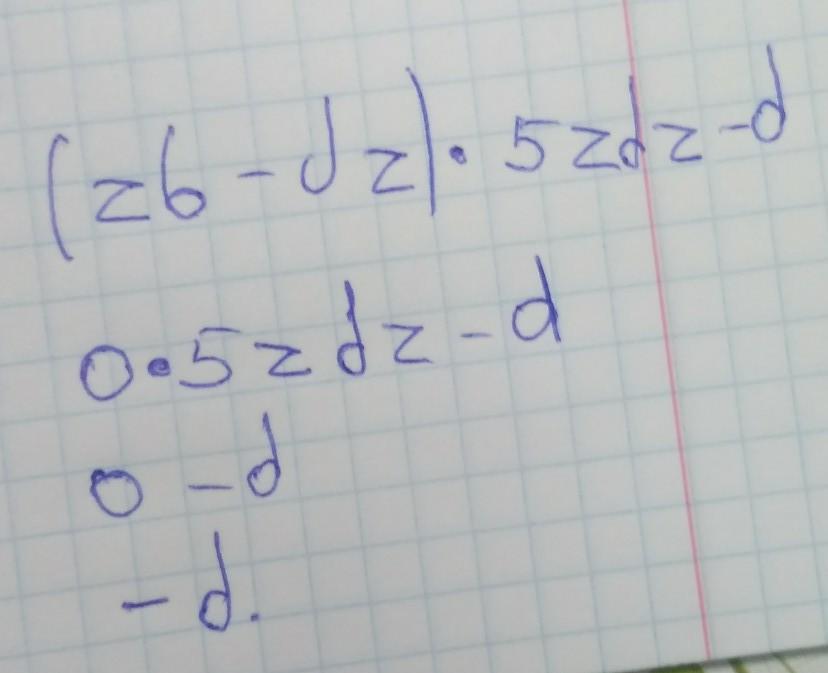 (zb - dz) · 5zdz - d
0 · 5zdz - d
0 - d
- d.